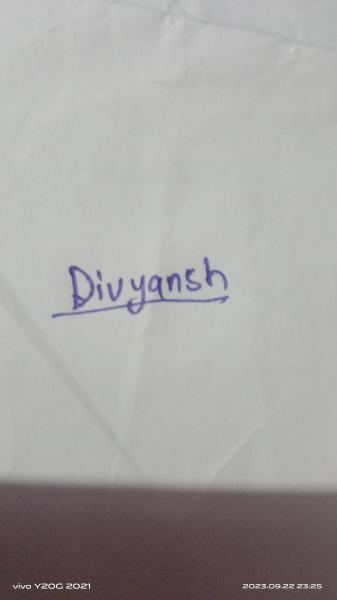 Divyansh
vivo Y20G 2021
2023.09.22 23:25